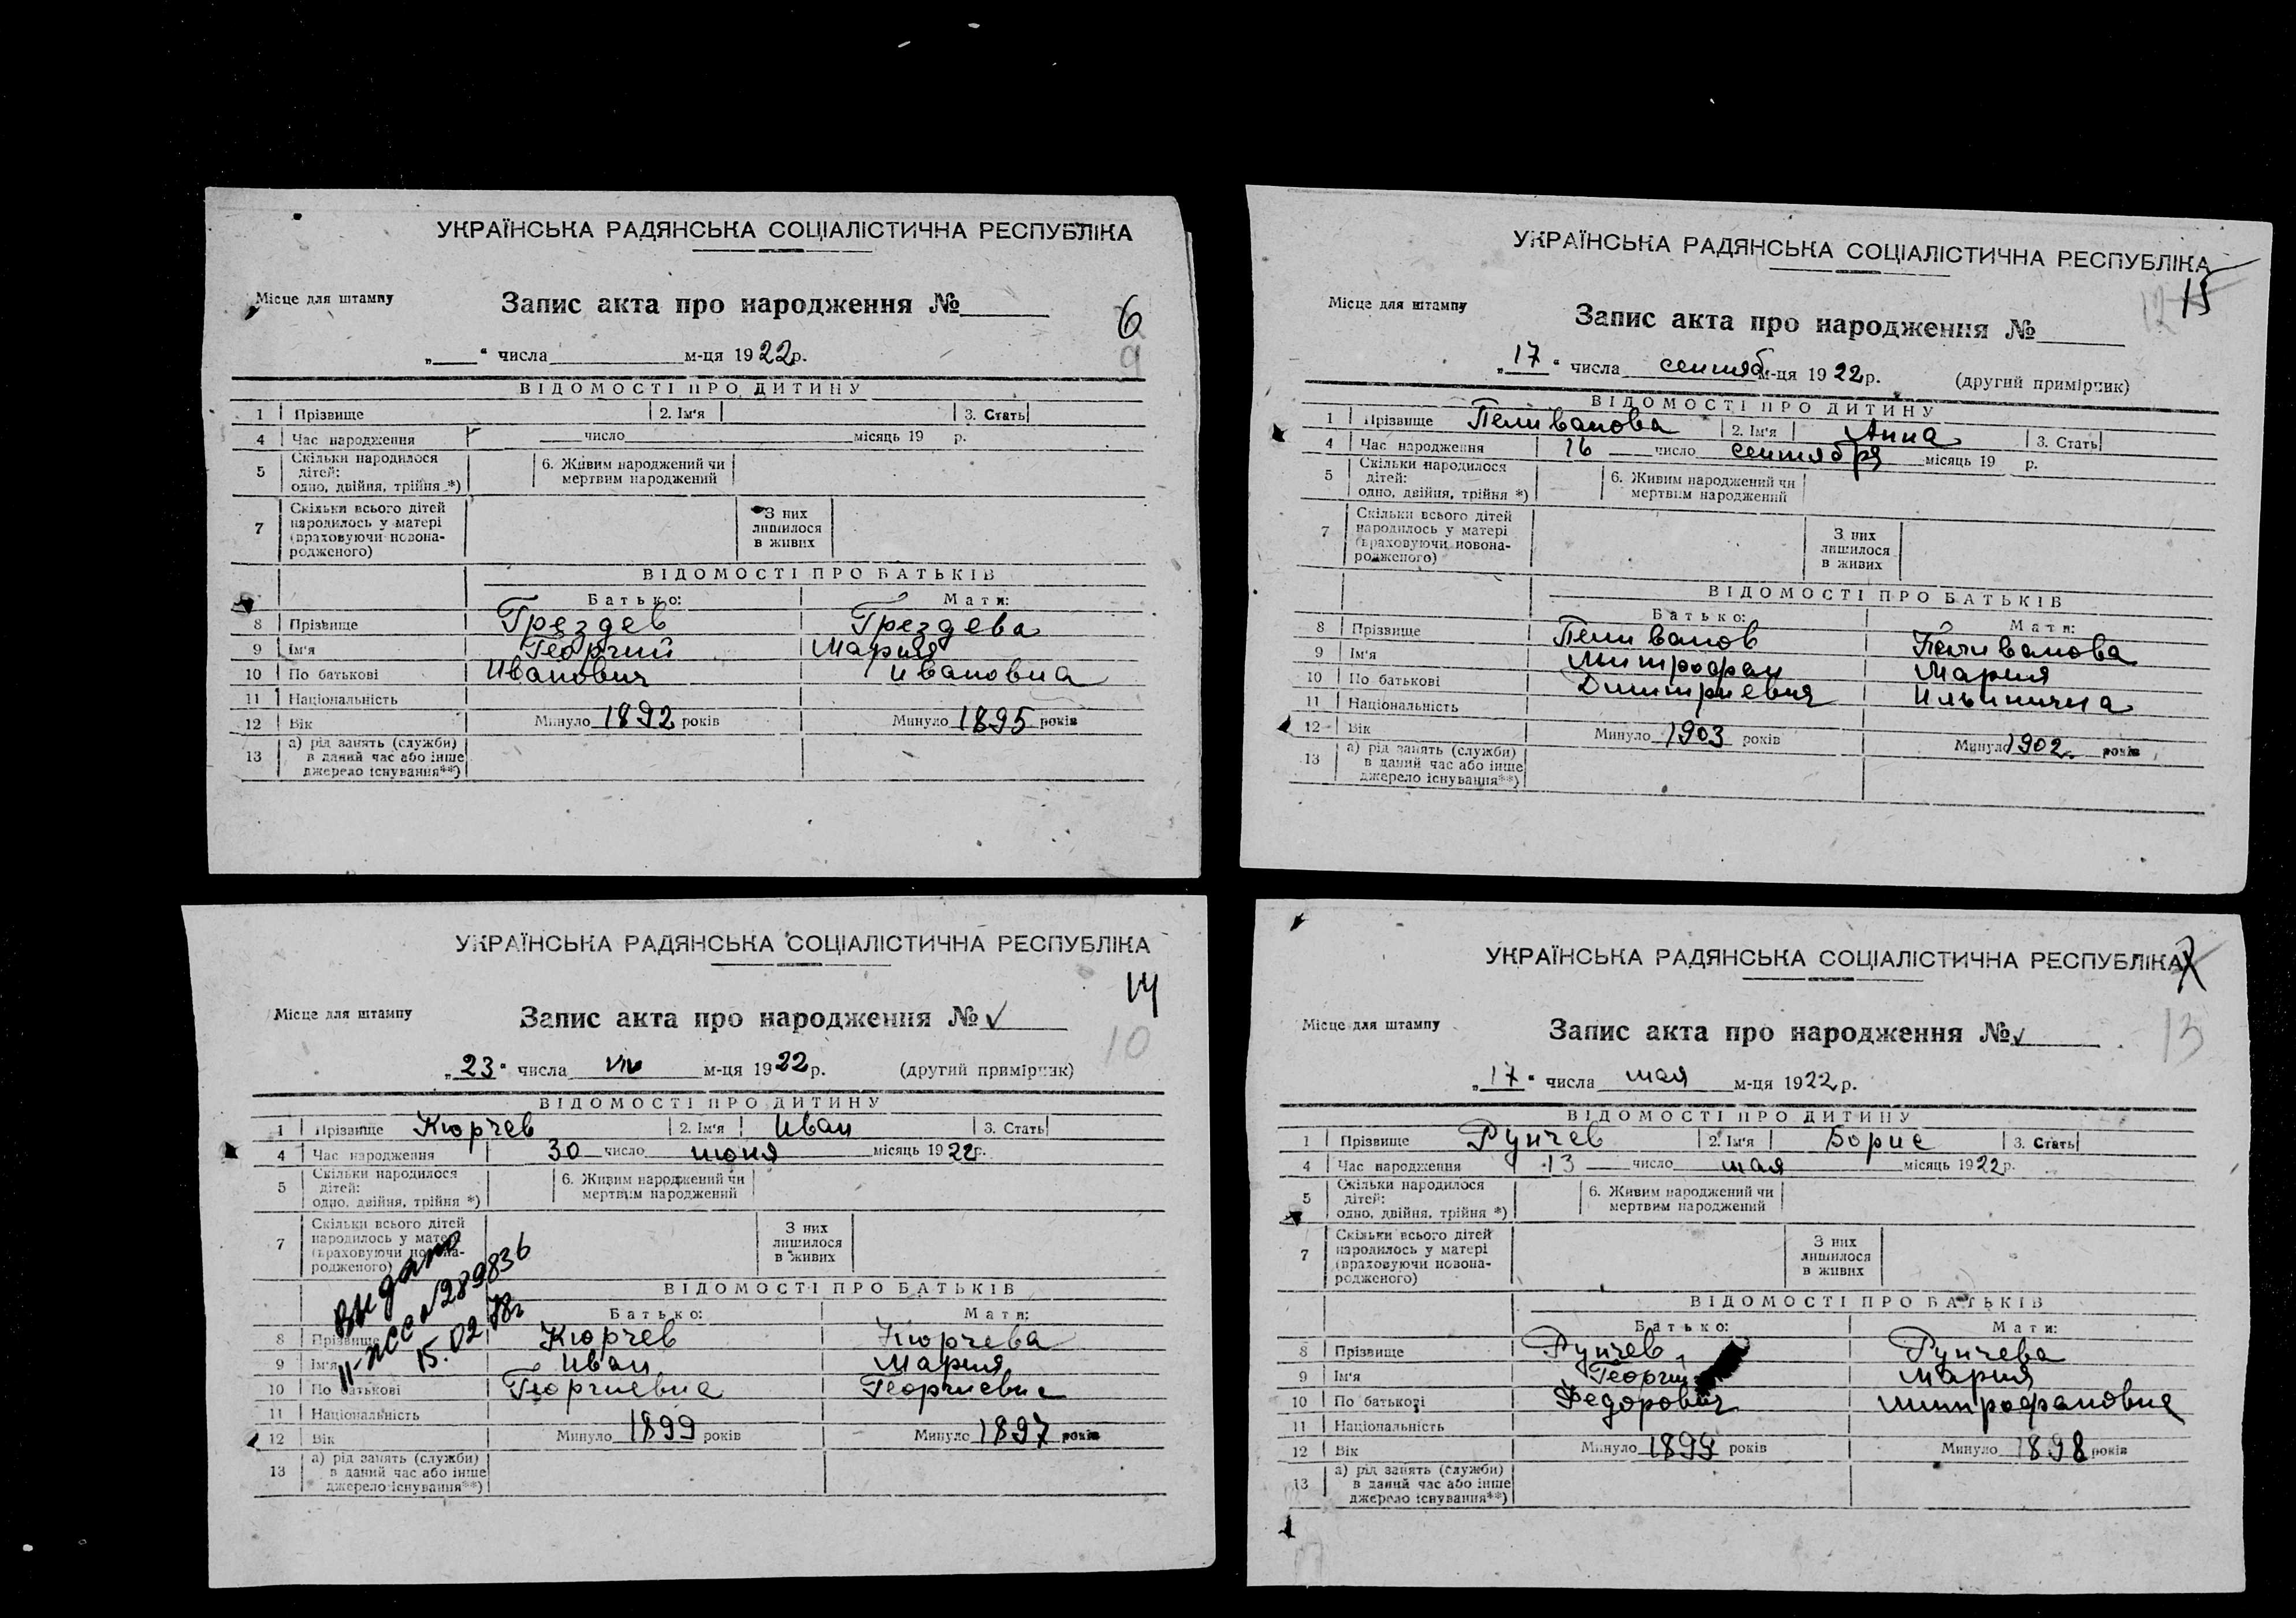 УКРАЇНСЬКА РАДЯНСЬКА СОЦІАЛІСТИЧНА РЕСПУБЛІКА
6
Місце для штампу Запис акта про народження №
9
„ “ числа м-ця 1922р.
ВІДОМОСТІ ПРО ДИТИНУ
1 Прізвище 2. Ім'я 3. Стать
4 Час народження число місяць 19 р.
5 Скільки народилося
дітей:
одно, двійня, трійня *)
6. Живим народжений чи
мертвим народжений
7 Скільки всього дітей
народилось у матері
(враховуючи новона-
родженого)
З них
лишилося
в живих
ВІДОМОСТІ ПРО БАТЬКІВ
Батько: Мати:
8 Прізвище Грездев Грездева
9 Ім'я Георгий Мария
10 По батькові Иванович Ивановна
11 Національність
12 Вік Минуло 1892 років Минуло 1895 років
13 а) рід занять (служби)
в даний час або інше
джерело існування**)
УКРАЇНСЬКА РАДЯНСЬКА СОЦІАЛІСТИЧНА РЕСПУБЛІКА
15
12
Місце для штампу Запис акта про народження №
„17“ числа сентяб м-ця 1922р. (другий примірник)
ВІДОМОСТІ ПРО ДИТИНУ
1 Прізвище Пеливанова 2. Ім'я Анна 3. Стать
4 Час народження 16 число сентября місяць 19 р.
5 Скільки народилося
дітей:
одно, двійня, трійня *)
6. Живим народжений чи
мертвим народжений
7 Скільки всього дітей
народилось у матері
(враховуючи новона-
родженого)
З них
лишилося
в живих
ВІДОМОСТІ ПРО БАТЬКІВ
Батько: Мати:
8 Прізвище Пеливанов Пеливанова
9 Ім'я Митрофан Мария
10 По батькові Димитриевич Ильинична
11 Національність
12 Вік Минуло 1903 років Минуло 1902 років
13 а) рід занять (служби)
в даний час або інше
джерело існування**)
УКРАЇНСЬКА РАДЯНСЬКА СОЦІАЛІСТИЧНА РЕСПУБЛІКА
14
Місце для штампу Запис акта про народження № √
10
„23“ числа VII м-ця 1922р. (другий примірник)
ВІДОМОСТІ ПРО ДИТИНУ
1 Прізвище Кюрчев 2. Ім'я Иван 3. Стать
4 Час народження 30 число июня місяць 1922р.
5 Скільки народилося
дітей:
одно, двійня, трійня *)
6. Живим народжений чи
мертвим народжений
7 Скільки всього дітей
народилось у матері
(враховуючи новона-
родженого)
З них
лишилося
в живих
Выдано
II-ЖС №289836
15.02.78г
ВІДОМОСТІ ПРО БАТЬКІВ
Батько: Мати:
8 Прізвище Кюрчев Кюрчева
9 Ім'я Иван Мария
10 По батькові Георгиевич Георгиевна
11 Національність
12 Вік Минуло 1899 років Минуло 1897 років
13 а) рід занять (служби)
в даний час або інше
джерело існування**)
УКРАЇНСЬКА РАДЯНСЬКА СОЦІАЛІСТИЧНА РЕСПУБЛІКА
7
Місце для штампу Запис акта про народження № √
13
„17“ числа мая м-ця 1922р.
ВІДОМОСТІ ПРО ДИТИНУ
1 Прізвище Рунчев 2. Ім'я Борис 3. Стать
4 Час народження 13 число мая місяць 1922р.
5 Скільки народилося
дітей:
одно, двійня, трійня *)
6. Живим народжений чи
мертвим народжений
7 Скільки всього дітей
народилось у матері
(враховуючи новона-
родженого)
З них
лишилося
в живих
ВІДОМОСТІ ПРО БАТЬКІВ
Батько: Мати:
8 Прізвище Рунчев Рунчева
9 Ім'я Георгий Мария
10 По батькові Федорович Митрофановна
11 Національність
12 Вік Минуло 1899 років Минуло 1898 років
13 а) рід занять (служби)
в даний час або інше
джерело існування**)